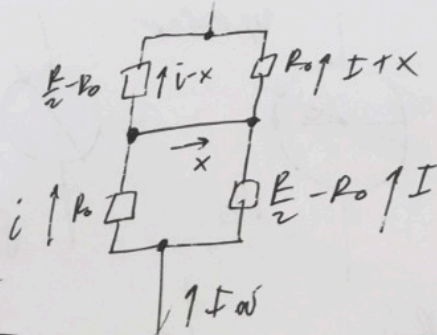 R/2-R₀ ↑ i-x R₀ ↑ I+x
→
x
i ↑ R₀ R/2-R₀ ↑ I
↑ I